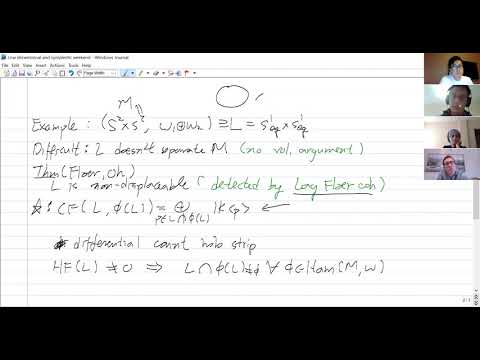 Low dimensional and symplectic weekend - Windows Journal
File Edit View Insert Actions Tools Help
Page Width
M
Example : (S² × S², ω₁⊕ω₂) ⊇ L = S¹eq × S¹eq
Difficult : L doesn't separate M (no vol. argument)
Thm (Floer, Oh)
L is non-displaceable (detected by Lag Floer coh)
☆ : CF(L, φ(L)) = ⊕ p∈L∩φ(L) IK<p> ←
differential count holo strip
HF(L) ≠ 0 ⇒ L∩φ(L) ≠ ∅ ∀ φ∈Ham(M, ω)